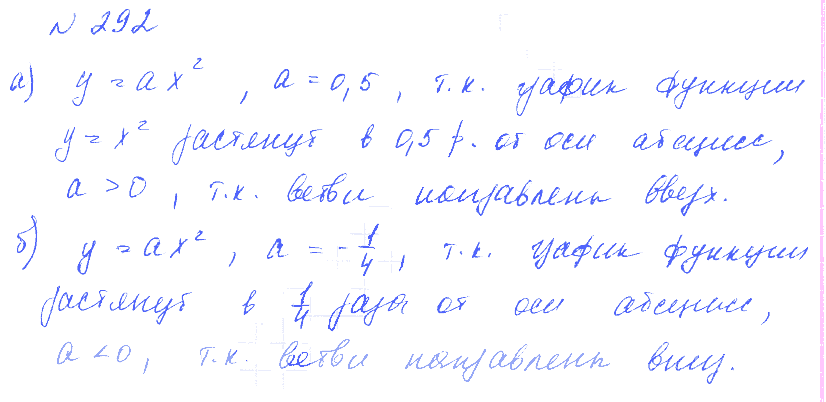 N 292
а) y = ax², a = 0,5, т.к. график функции
y = x² растянут в 0,5 р. от оси абсцисс,
a > 0, т.к. ветви направлены вверх.
б) y = ax², a = -1/4, т.к. график функции
растянут в 1/4 раза от оси абсцисс,
a < 0, т.к. ветви направлены вниз.